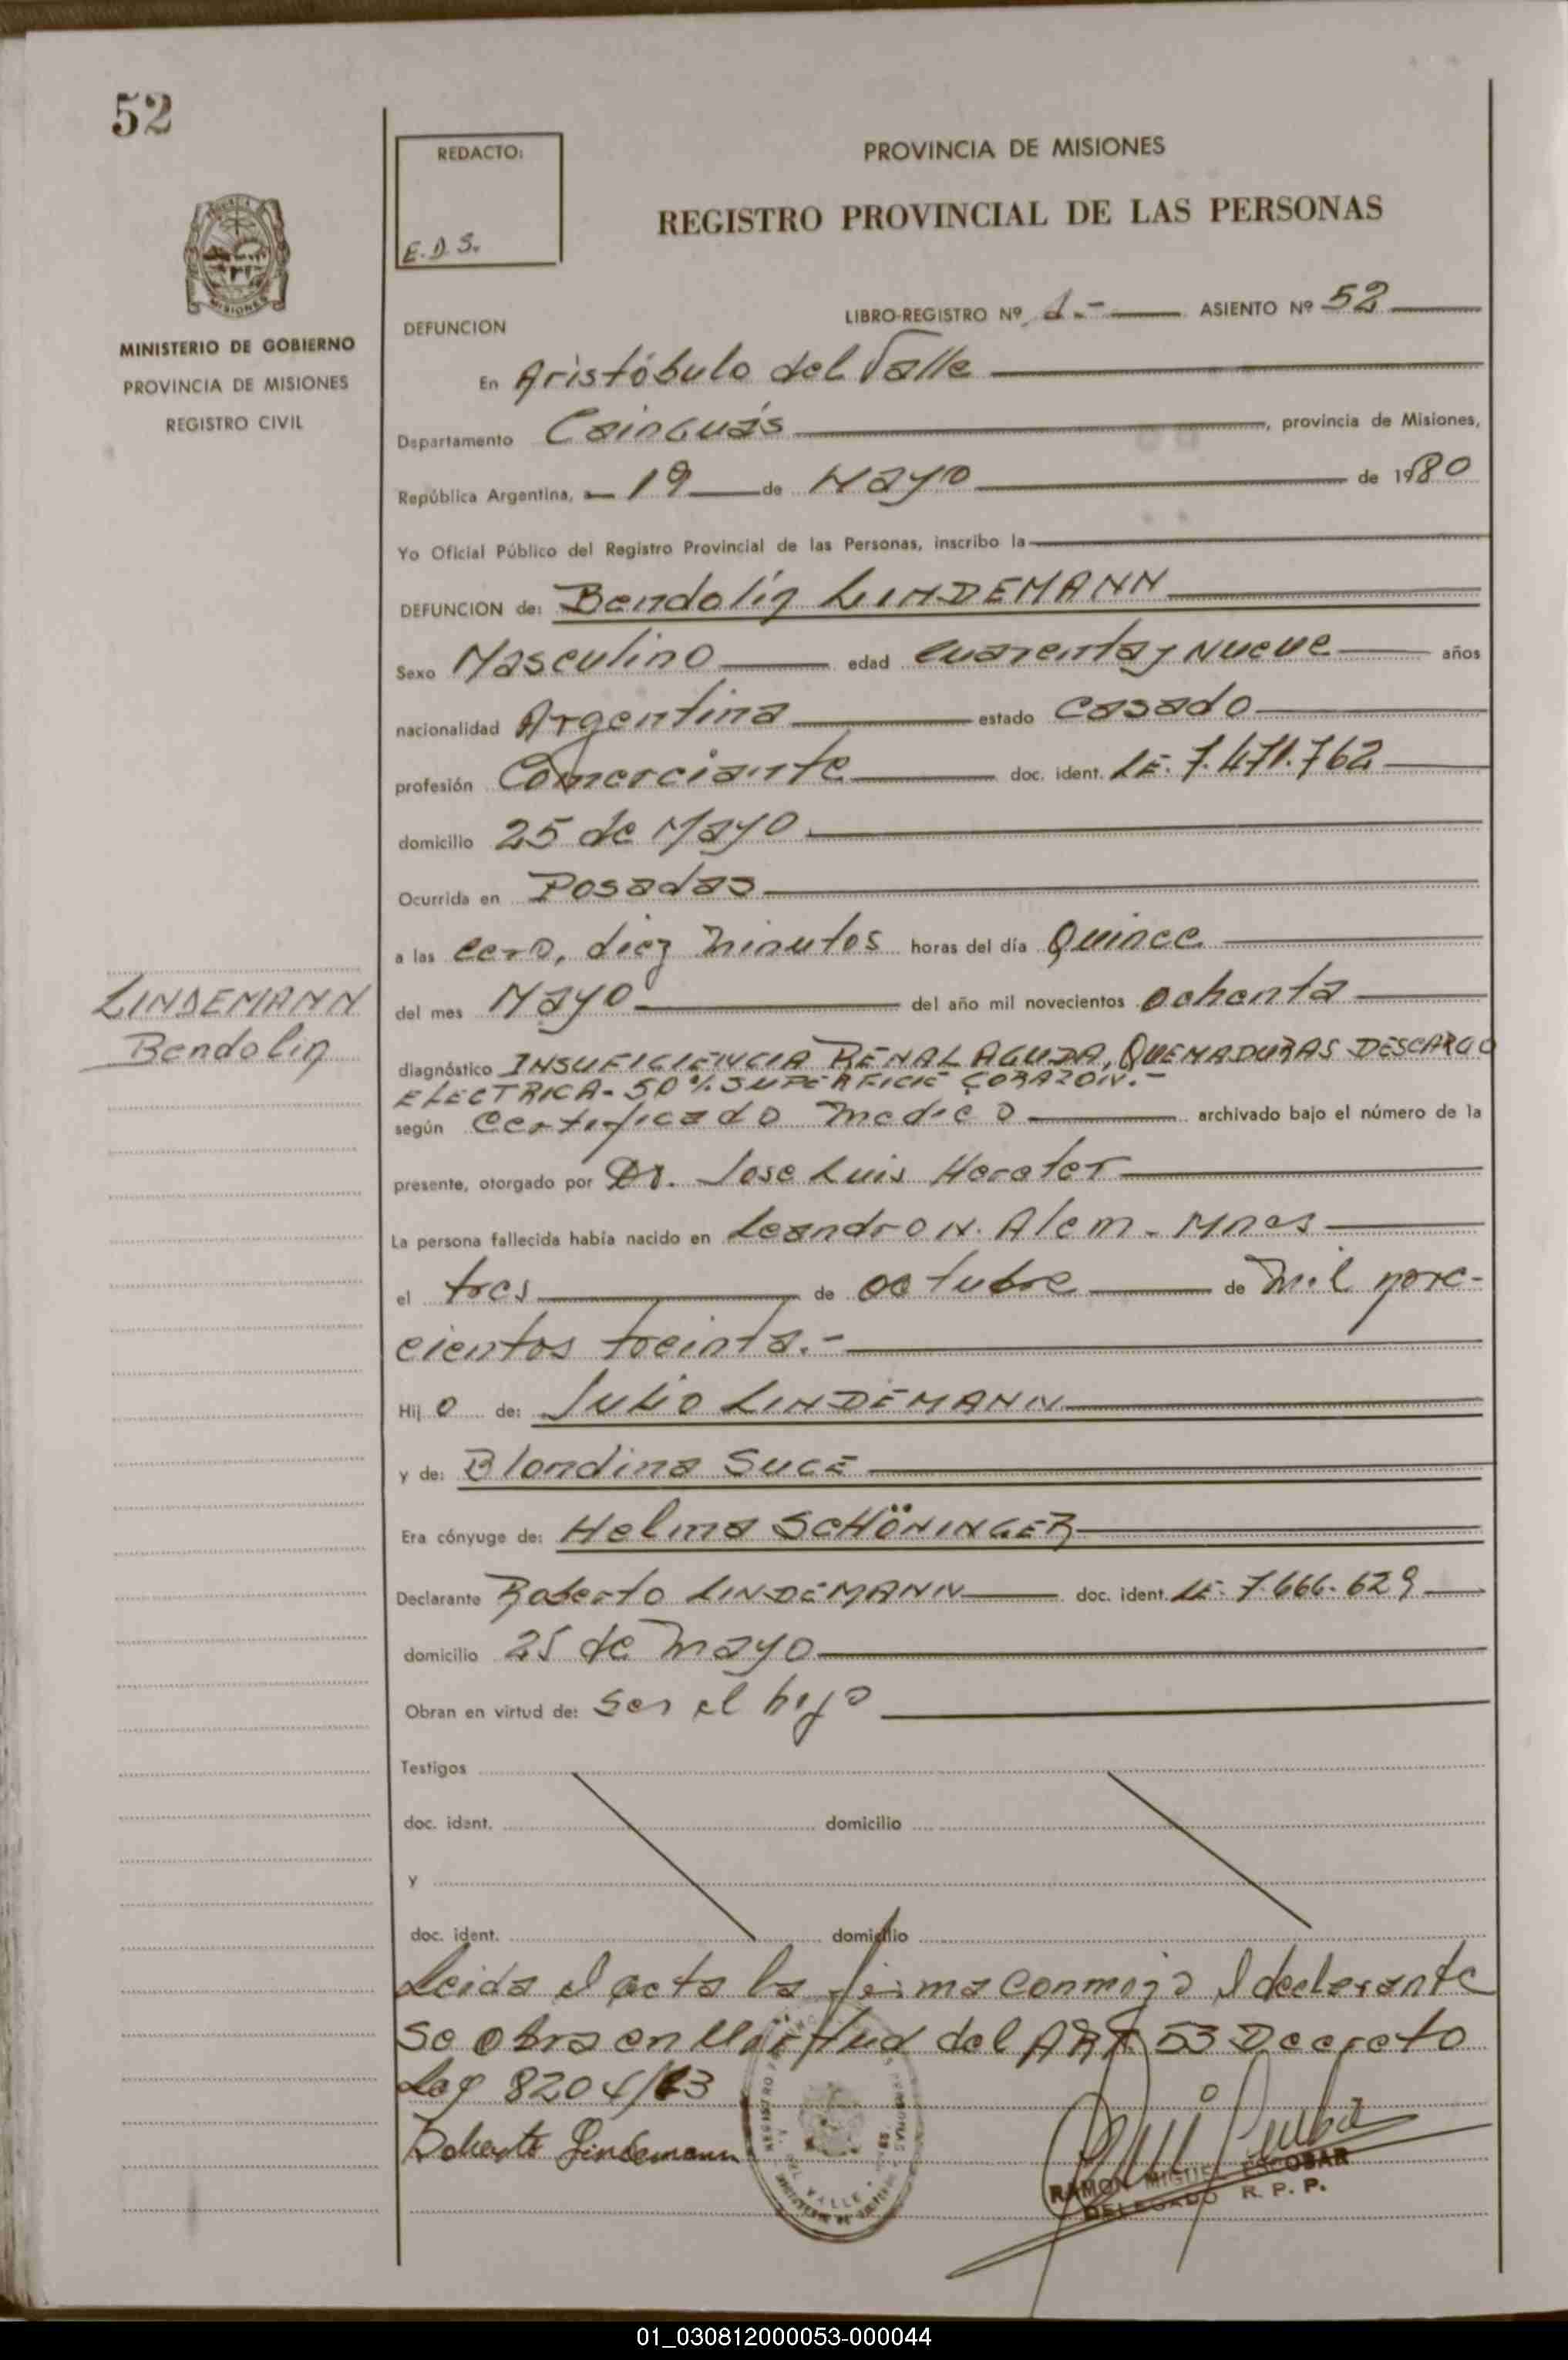 52
REDACTO:
E.D.S.
PROVINCIA DE MISIONES
REGISTRO PROVINCIAL DE LAS PERSONAS
MISIONES
MINISTERIO DE GOBIERNO
PROVINCIA DE MISIONES
REGISTRO CIVIL
LIBRO-REGISTRO Nº 1.- ASIENTO Nº 52
DEFUNCION
En Aristóbulo del Valle
Departamento Cainguás, provincia de Misiones,
República Argentina, 19 de Mayo de 1980
Yo Oficial Público del Registro Provincial de las Personas, inscribo la
DEFUNCION de: Bendolin LINDEMANN
Sexo Masculino edad cuarenta y nueve años
nacionalidad Argentina estado Casado
profesión Comerciante doc. ident. LE. 7.471.762
domicilio 25 de Mayo
Ocurrida en Posadas
a las cero, diez minutos horas del día Quince
LINDEMANN
Bendolin
del mes Mayo del año mil novecientos ochenta
diagnóstico INSUFICIENCIA RENAL AGUDA, QUEMADURAS DESCARGO
ELECTRICA- 50% SUPERFICIE CORAZON.-
según Certificado medico archivado bajo el número de la
presente, otorgado por Dr. Jose Luis
La persona fallecida había nacido en Leandro N. Alem - Mnes
el tres de octubre de mil nove-
cientos treinta.-
Hijo de: Julio LINDEMANN
y de: Blondina SUCE
Era cónyuge de: Helma SCHÖNINGER
Declarante Roberto LINDEMANN doc. ident. LE. 7.666.629
domicilio 25 de Mayo
Obran en virtud de: ser el hijo
Testigos
doc. ident. domicilio
y
doc. ident. domicilio
Leida el acta la firma conmigo el declarante
se obra en virtud del ART 53 Decreto
Ley 8204/63
Roberto Lindemann
RAMON MIGUEL ESCOBAR
DELEGADO R. P. P.
01_030812000053-000044